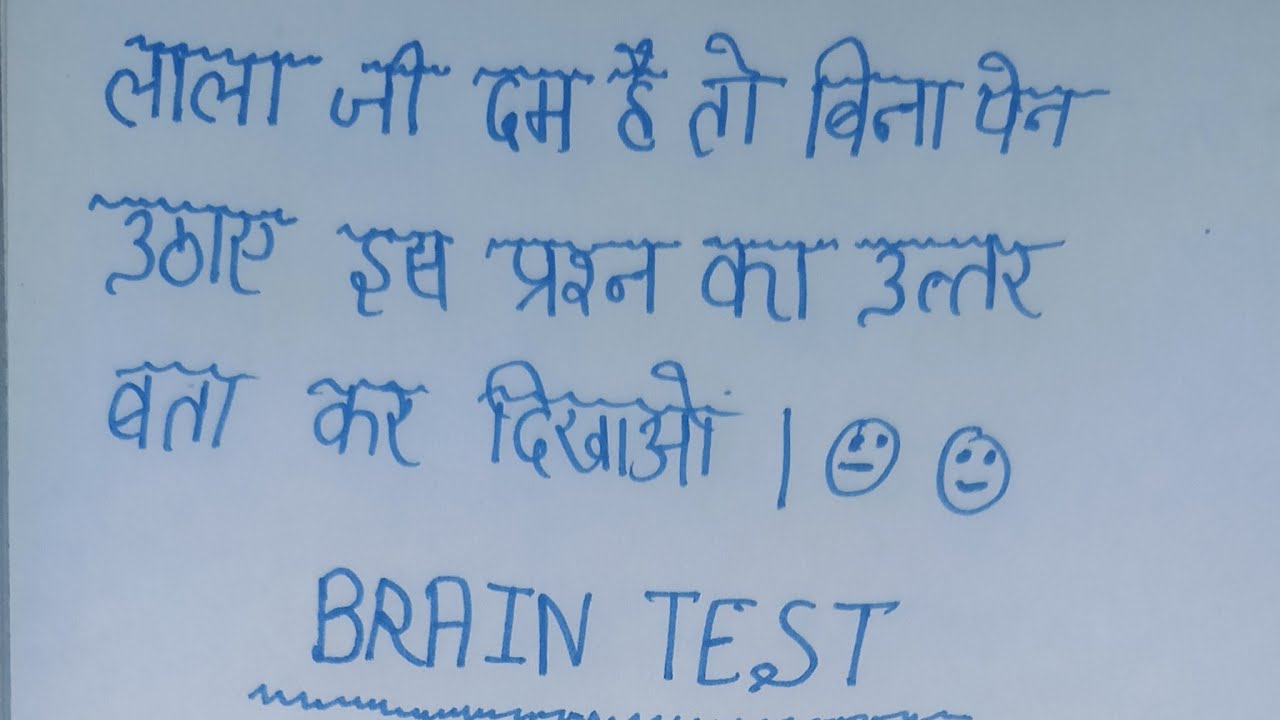 लाला जी दम है तो बिना पेन
उठाए इस प्रश्न का उत्तर
बता कर दिखाओं | 
BRAIN TEST